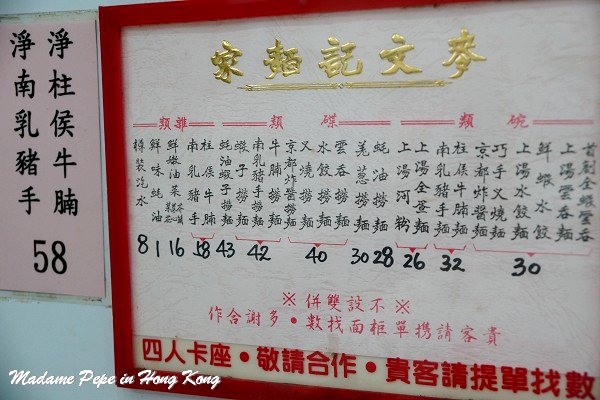 淨柱侯牛腩
淨南乳豬手
58
麥文記麵家
碗類
首創全蝦雲吞
上湯雲吞麵
鮮蝦水餃
上湯水餃麵
巧手叉燒麵
京都炸醬麵
30
柱侯牛腩麵
南乳豬手麵
32
上湯全荳麵
上湯河粉
26
碟類
蠔油撈麵
28
羗葱撈麵
30
雲吞撈麵
水餃撈麵
叉燒撈麵
京都炸醬撈麵
40
牛腩撈麵
南乳豬手撈麵
蝦子撈麵
42
蠔油蝦子撈麵
43
雜類
柱侯牛腩
南乳豬手
58
鮮嫩油菜
16
鮮味蠔油
1
樽裝汽水
8
※不設雙併※
貴客請攜單櫃面找數・多謝合作
四人卡座・敬請合作・貴客請提單找數
Madame Pepe in Hong Kong